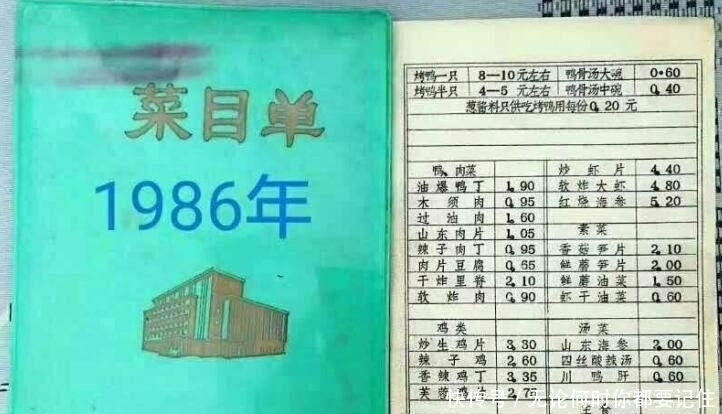 菜目单
1986年
烤鸭一只 8—10元左右 鸭骨汤大碗 0.60
烤鸭半只 4—5元左右 鸭骨汤中碗 0.40
葱酱料只供吃烤鸭用每份0.20元
鸭、肉菜
油爆鸭丁 1.90
木须肉 0.95
过油肉 1.60
山东肉片 1.05
辣子肉丁 0.95
肉片豆腐 0.65
干炸里脊 2.10
软炸肉 0.90
鸡类
炒生鸡片 3.30
辣子鸡 2.60
香辣鸡丁 3.35
芙蓉鸡片 2.75
炒虾片 4.40
软炸大虾 4.80
红烧海参 5.20
素菜
香菇笋片 2.10
鲜蘑笋片 2.00
鲜蘑油菜 1.50
虾干油菜 0.60
汤菜
山东海参 2.00
四丝酸辣汤 0.60
川鸭肝 0.60
快传号/无论何时你都要记住